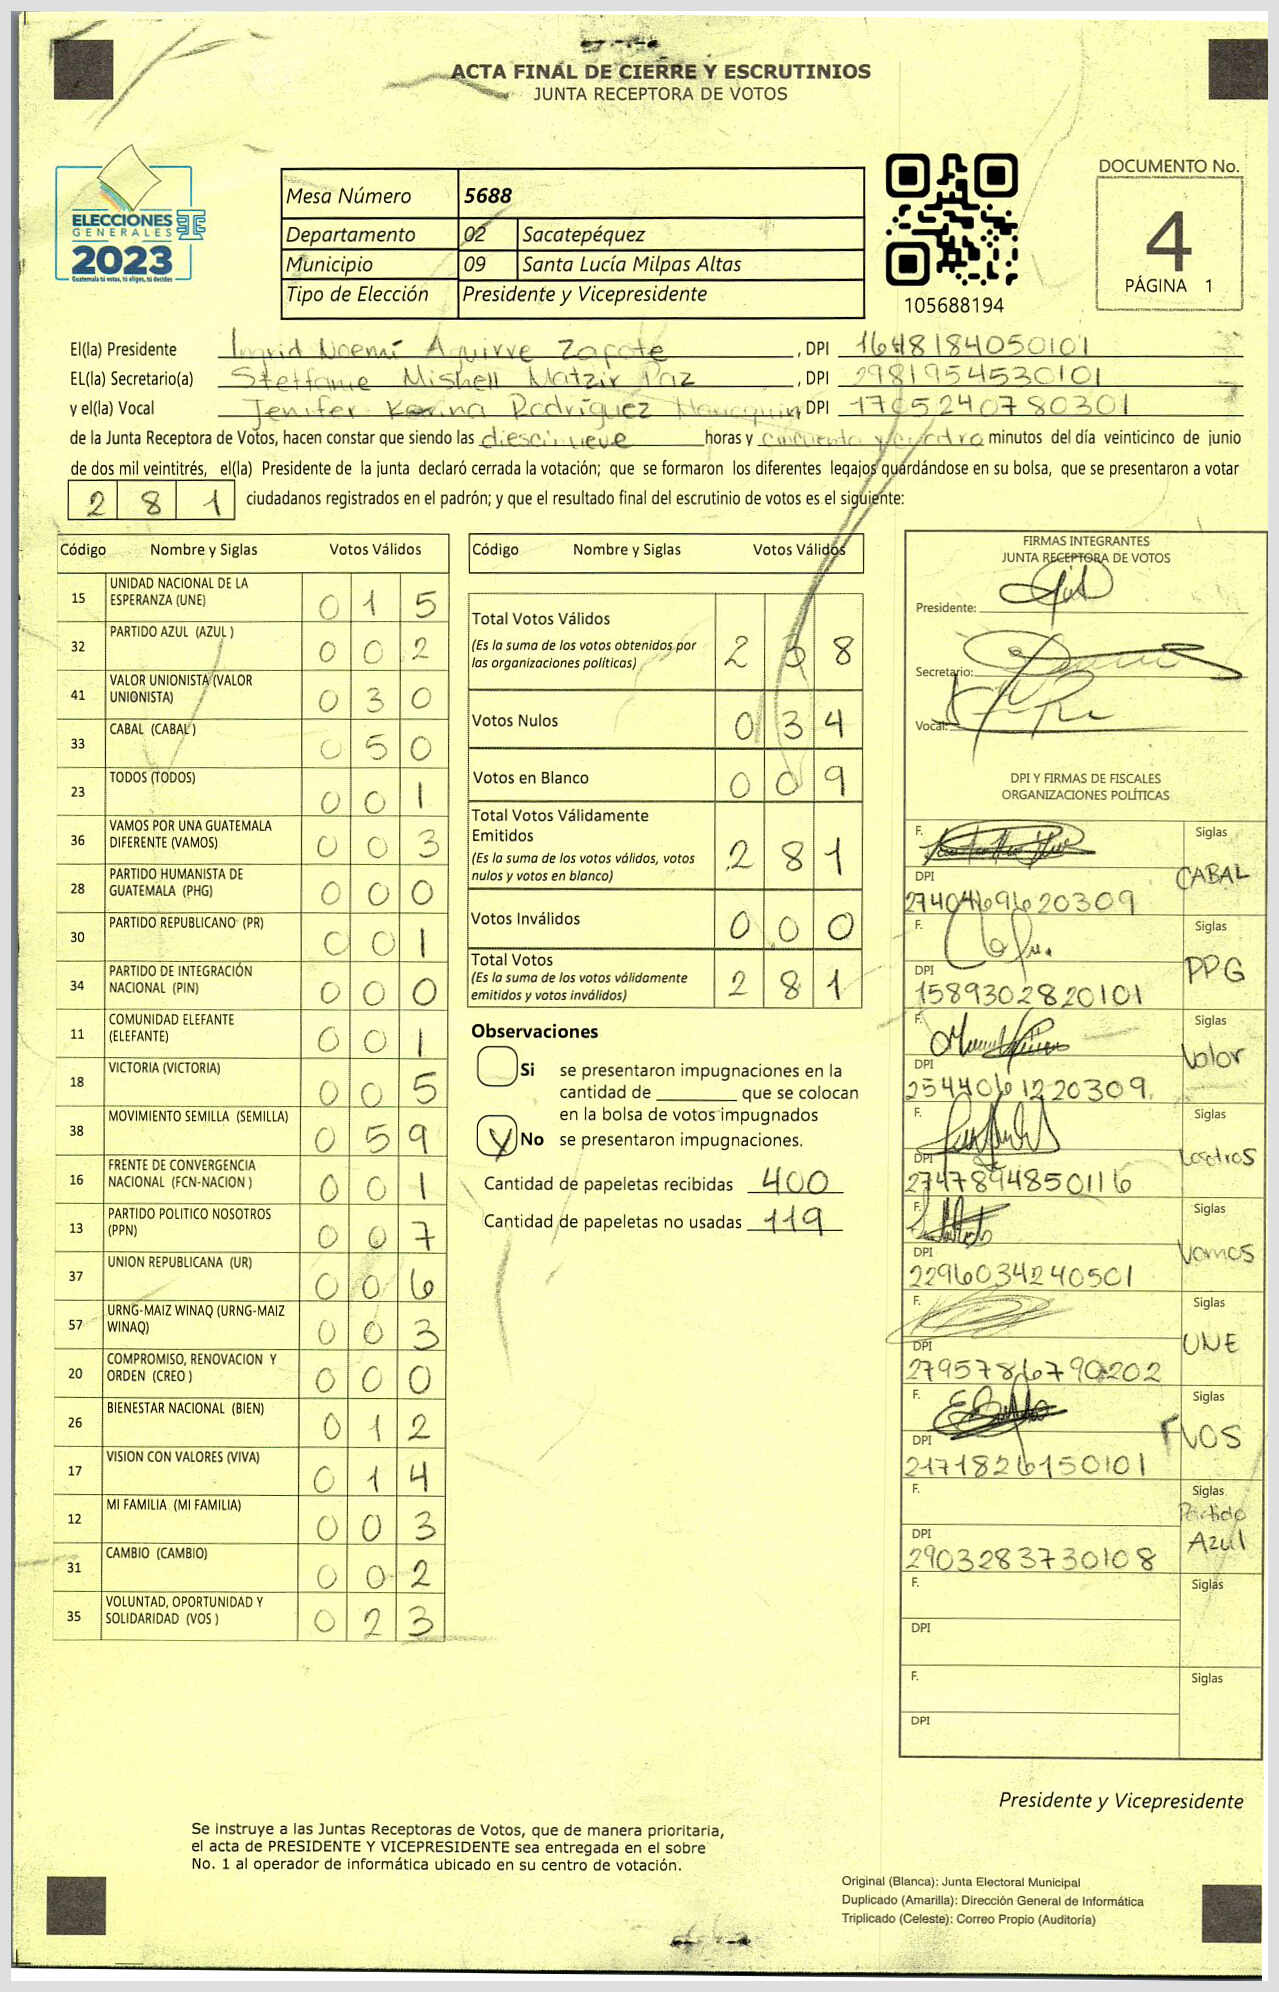 ACTA FINAL DE CIERRE Y ESCRUTINIOS
JUNTA RECEPTORA DE VOTOS
ELECCIONES
GENERALES
2023
Guatemala tú votas, tú eliges, tú decides
Mesa Número 5688
Departamento 02 Sacatepéquez
Municipio 09 Santa Lucía Milpas Altas
Tipo de Elección Presidente y Vicepresidente
105688194
DOCUMENTO No.
4
PÁGINA 1
El(la) Presidente Ingrid Noemí Aguirre Zapote, DPI 1648184050101
EL(la) Secretario(a) Steffanie Mishell Matzir Paz, DPI 2981954530101
y el(la) Vocal Jenifer Karina Rodríguez DPI 1705240780301
de la Junta Receptora de Votos, hacen constar que siendo las diescinueve horas y cincuenta y cuatro minutos del día veinticinco de junio
de dos mil veintitrés, el(la) Presidente de la junta declaró cerrada la votación; que se formaron los diferentes legajos guardándose en su bolsa, que se presentaron a votar
281 ciudadanos registrados en el padrón; y que el resultado final del escrutinio de votos es el siguiente:
Código Nombre y Siglas Votos Válidos
15 UNIDAD NACIONAL DE LA
ESPERANZA (UNE) 0 1 5
32 PARTIDO AZUL (AZUL ) 0 0 2
41 VALOR UNIONISTA (VALOR
UNIONISTA) 0 3 0
33 CABAL (CABAL ) 0 5 0
23 TODOS (TODOS) 0 0 1
36 VAMOS POR UNA GUATEMALA
DIFERENTE (VAMOS) 0 0 3
28 PARTIDO HUMANISTA DE
GUATEMALA (PHG) 0 0 0
30 PARTIDO REPUBLICANO (PR) 0 0 1
34 PARTIDO DE INTEGRACIÓN
NACIONAL (PIN) 0 0 0
11 COMUNIDAD ELEFANTE
(ELEFANTE) 0 0 1
18 VICTORIA (VICTORIA) 0 0 5
38 MOVIMIENTO SEMILLA (SEMILLA) 0 5 9
16 FRENTE DE CONVERGENCIA
NACIONAL (FCN-NACION ) 0 0 1
13 PARTIDO POLITICO NOSOTROS
(PPN) 0 0 7
37 UNION REPUBLICANA (UR) 0 0 6
57 URNG-MAIZ WINAQ (URNG-MAIZ
WINAQ) 0 0 3
20 COMPROMISO, RENOVACION Y
ORDEN (CREO ) 0 0 0
26 BIENESTAR NACIONAL (BIEN) 0 1 2
17 VISION CON VALORES (VIVA) 0 1 4
12 MI FAMILIA (MI FAMILIA) 0 0 3
31 CAMBIO (CAMBIO) 0 0 2
35 VOLUNTAD, OPORTUNIDAD Y
SOLIDARIDAD (VOS ) 0 2 3
Código Nombre y Siglas Votos Válidos
Total Votos Válidos
(Es la suma de los votos obtenidos por
las organizaciones políticas) 2 3 8
Votos Nulos 0 3 4
Votos en Blanco 0 0 9
Total Votos Válidamente
Emitidos
(Es la suma de los votos válidos, votos
nulos y votos en blanco) 2 8 1
Votos Inválidos 0 0 0
Total Votos
(Es la suma de los votos válidamente
emitidos y votos inválidos) 2 8 1
Observaciones
Si se presentaron impugnaciones en la
cantidad de ________ que se colocan
en la bolsa de votos impugnados
No se presentaron impugnaciones.
Cantidad de papeletas recibidas 400
Cantidad de papeletas no usadas 119
FIRMAS INTEGRANTES
JUNTA RECEPTORA DE VOTOS
Presidente:
Secretario:
Vocal:
DPI Y FIRMAS DE FISCALES
ORGANIZACIONES POLÍTICAS
F. Siglas
CABAL
DPI
2740469620309
F. Siglas
PPG
DPI
1589302820101
F. Siglas
Valor
DPI
2544061220309
F. Siglas
DPI
2747894850116
F. Siglas
Vamos
DPI
2296034240501
F. Siglas
UNE
DPI
2795786790202
F. Siglas
VOS
DPI
2171826150101
F. Siglas
Partido
Azul
DPI
2903283730108
F. Siglas
DPI
F. Siglas
DPI
Presidente y Vicepresidente
Se instruye a las Juntas Receptoras de Votos, que de manera prioritaria,
el acta de PRESIDENTE Y VICEPRESIDENTE sea entregada en el sobre
No. 1 al operador de informática ubicado en su centro de votación.
Original (Blanca): Junta Electoral Municipal
Duplicado (Amarilla): Dirección General de Informática
Triplicado (Celeste): Correo Propio (Auditoría)